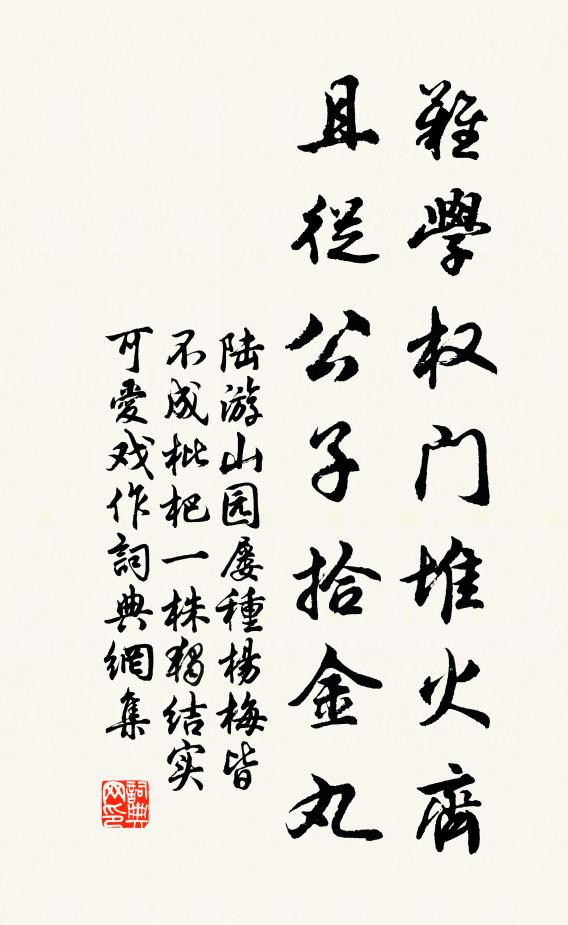 難學权门堆火齊
且從公子拾金丸
陆游山园屡種楊梅皆
不成枇杷一株獨结实
可愛戏作詞典網集
詞典
网印